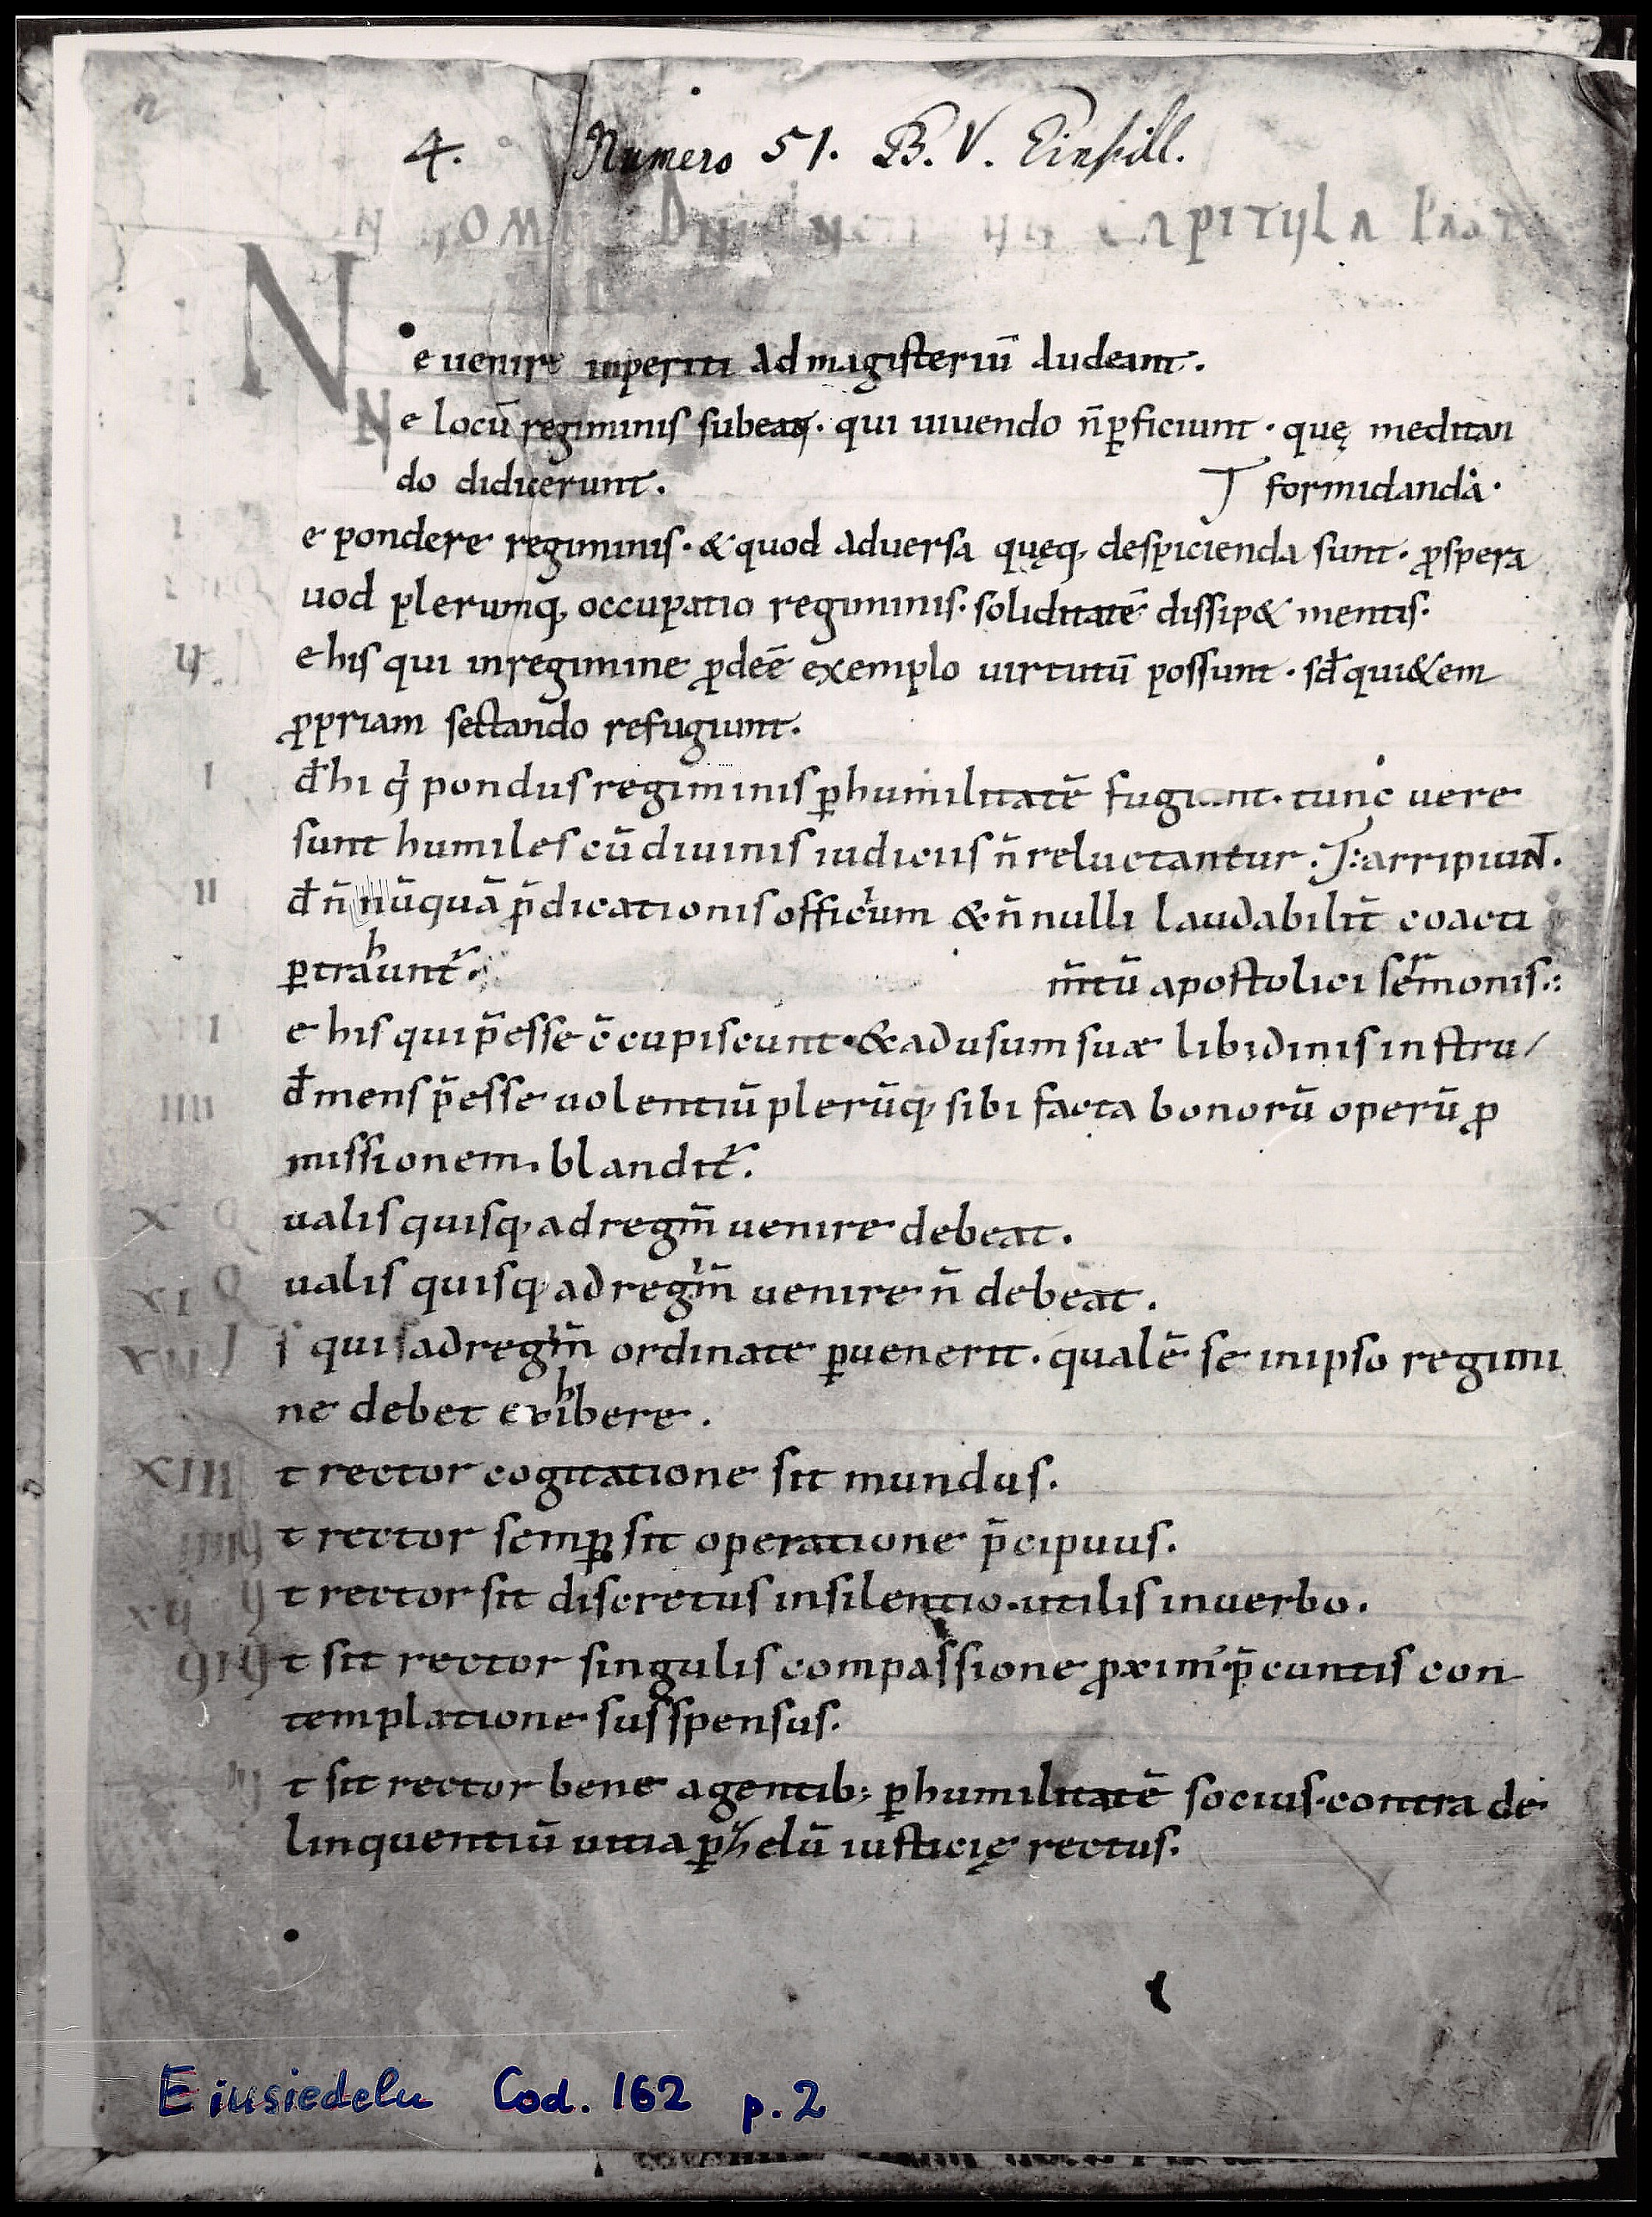 4. Numero 51. B. V. Einsidl.
CAPITULA PAST
Ne uenire inperiti ad magisteriū audeant.
Ne locū regiminis subeant. qui uiuendo n̄ ꝑficiunt. quę meditan
do didicerunt. formidanda.
e pondere regiminis. & quod aduersa quęq; despicienda sunt. ꝓspera
uod plerumq; occupatio regiminis. soliditatē dissip& mentis.
e his qui in regimine ꝓdeē exemplo uirtutū possunt. sꝺ̄ qui&em
ꝓpriam sectando refugiunt.
I đ hi q̇ pondus regiminis ꝑ humilitatē fugiunt. tunc uere
sunt humiles cū diuinis iudiciis n̄ reluctantur. arripiunt.
II đ n̄nūquā p̄dicationis officium & n̄nulli laudabilit̄ coacti
ꝑtrahunt. m̄tū apostolici sermonis.
e his qui p̄esse c̄cupiscunt. & ad usum suæ libidinis instru/
IIII đ mens p̄esse uolentiū plerūq; sibi facta bonorū operū ꝓ
missionem. blandit̄.
X Qualis quisq; ad regim̄ uenire debeat.
XI Qualis quisq; ad regim̄ uenire n̄ debeat.
XII Is qui ad regim̄ ordinate ꝑuenerit. qualē se in ipso regimi
ne debet exhibere.
XIII t rector cogitatione sit mundus.
t rector semꝑ sit operatione p̄cipuus.
XU Ut rector sit discretus in silentio. utilis in uerbo.
Ut sit rector singulis compassione ꝓximꝰ. p̄ cuntis con
templatione susspensus.
t sit rector bene agentib; ꝑ humilitatē socius. contra de
linquentiū uitia ꝑ zelū iusticię rectus.
Einsiedeln Cod. 162 p. 2